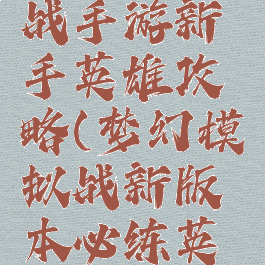 战手游新
手英雄攻
略(梦幻模
拟战新版
本必练英